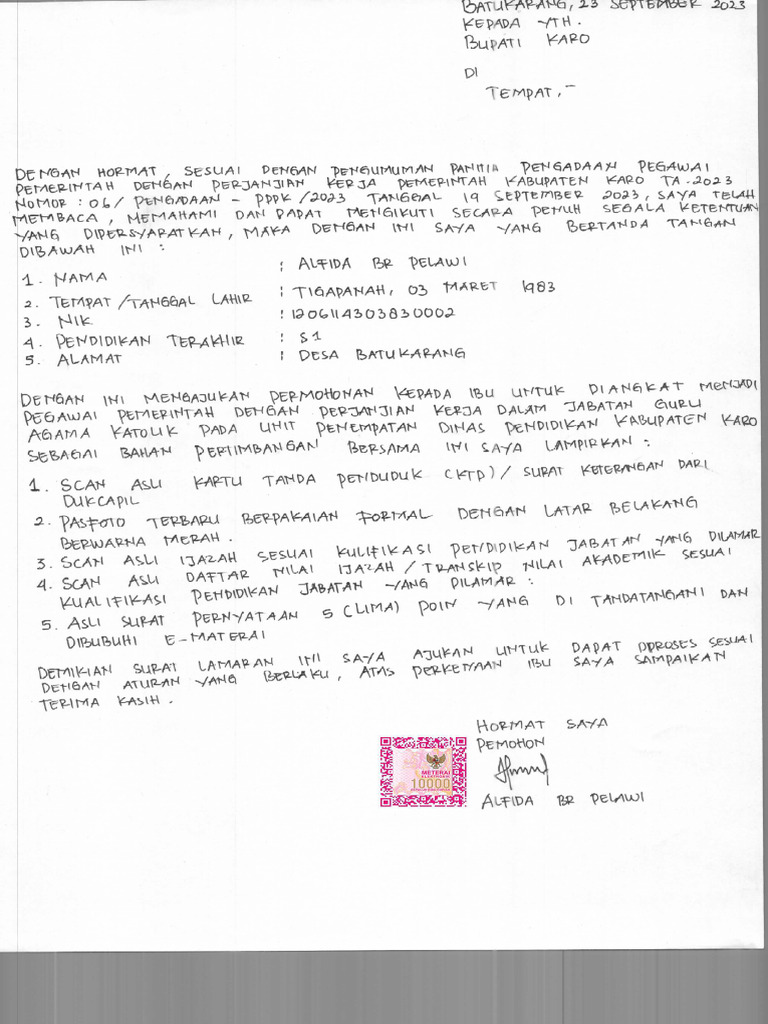 BATUKARANG, 23 SEPTEMBER 2023
KEPADA YTH.
BUPATI KARO
DI
TEMPAT,-
DENGAN HORMAT, SESUAI DENGAN PENGUMUMAN PANITIA PENGADAAN PEGAWAI
PEMERINTAH DENGAN PERJANJIAN KERJA PEMERINTAH KABUPATEN KARO TA.2023
NOMOR : 06/ PENGADAAN - PPPK /2023 TANGGAL 19 SEPTEMBER 2023, SAYA TELAH
MEMBACA, MEMAHAMI DAN DAPAT MENGIKUTI SECARA PENUH SEGALA KETENTUAN
YANG DIPERSYARATKAN, MAKA DENGAN INI SAYA YANG BERTANDA TANGAN
DIBAWAH INI :
1. NAMA : ALFIDA BR PELAWI
2. TEMPAT/TANGGAL LAHIR : TIGAPANAH, 03 MARET 1983
3. NIK : 1206114303830002
4. PENDIDIKAN TERAKHIR : S1
5. ALAMAT : DESA BATUKARANG
DENGAN INI MENGAJUKAN PERMOHONAN KEPADA IBU UNTUK DIANGKAT MENJADI
PEGAWAI PEMERINTAH DENGAN PERJANJIAN KERJA DALAM JABATAN GURU
AGAMA KATOLIK PADA UNIT PENEMPATAN DINAS PENDIDIKAN KABUPATEN KARO
SEBAGAI BAHAN PERTIMBANGAN BERSAMA INI SAYA LAMPIRKAN :
1. SCAN ASLI KARTU TANDA PENDUDUK (KTP)/ SURAT KETERANGAN DARI
DUKCAPIL
2. PASFOTO TERBARU BERPAKAIAN FORMAL DENGAN LATAR BELAKANG
BERWARNA MERAH.
3. SCAN ASLI IJAZAH SESUAI KULIFIKASI PENDIDIKAN JABATAN YANG DILAMAR
4. SCAN ASLI DAFTAR NILAI IJAZAH / TRANSKIP NILAI AKADEMIK SESUAI
KUALIFIKASI PENDIDIKAN JABATAN YANG DILAMAR :
5. ASLI SURAT PERNYATAAN 5 (LIMA) POIN YANG DI TANDATANGANI DAN
DIBUBUHI E-MATERAI
DEMIKIAN SURAT LAMARAN INI SAYA AJUKAN UNTUK DAPAT DPROSES SESUAI
DENGAN ATURAN YANG BERLAKU, ATAS PERKENAAN IBU SAYA SAMPAIKAN
TERIMA KASIH.
HORMAT SAYA
PEMOHON
METERAI
ELEKTRONIK
10000
ALFIDA BR PELAWI